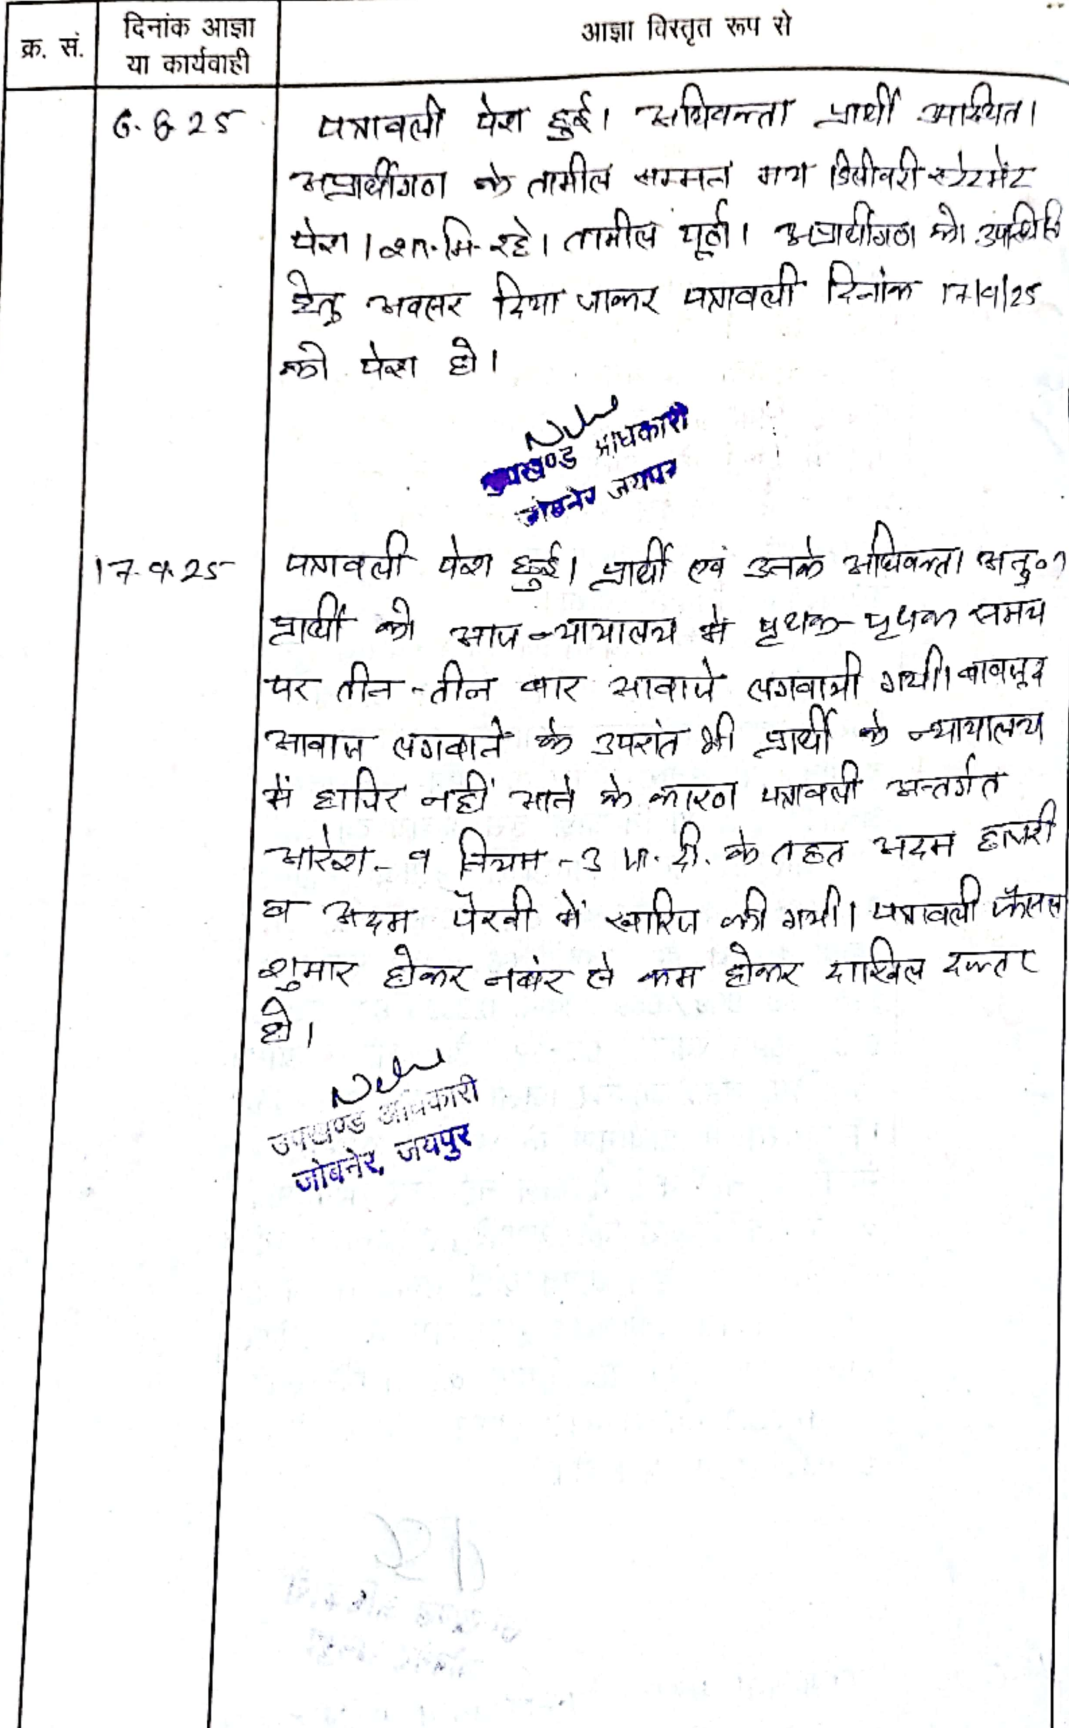 क्र. सं.
दिनांक आज्ञा
या कार्यवाही
आज्ञा विस्तृत रूप से
6.8.25
पत्रावली पेश हुई। अधिवक्ता प्रार्थी उपस्थित।
अप्रार्थीगण के तामील सम्मन मय डिलीवरी स्टेटमेंट
पेश। शा.मि. रहे। तामील पूर्ण। अप्रार्थीगण को उपस्थिति
हेतु अवसर दिया जाकर पत्रावली दिनांक 17/9/25
को पेश हो।
उपखण्ड अधिकारी
जोबनेर जयपुर
17.9.25
पत्रावली पेश हुई। प्रार्थी एवं उनके अधिवक्ता अनु०।
प्रार्थी को आज न्यायालय में पृथक-पृथक समय
पर तीन-तीन बार आवाजे लगवायी गयी। बावजूद
आवाज लगवाने के उपरांत भी प्रार्थी के न्यायालय
में हाजिर नहीं आने के कारण पत्रावली अन्तर्गत
आदेश-9 नियम-3 के तहत अदम हाजरी
व अदम पैरवी में खारिज की गयी। पत्रावली फैसल
शुमार होकर नबंर से कम होकर दाखिल दफ्तर
हो।
उपखण्ड अधिकारी
जोबनेर, जयपुर